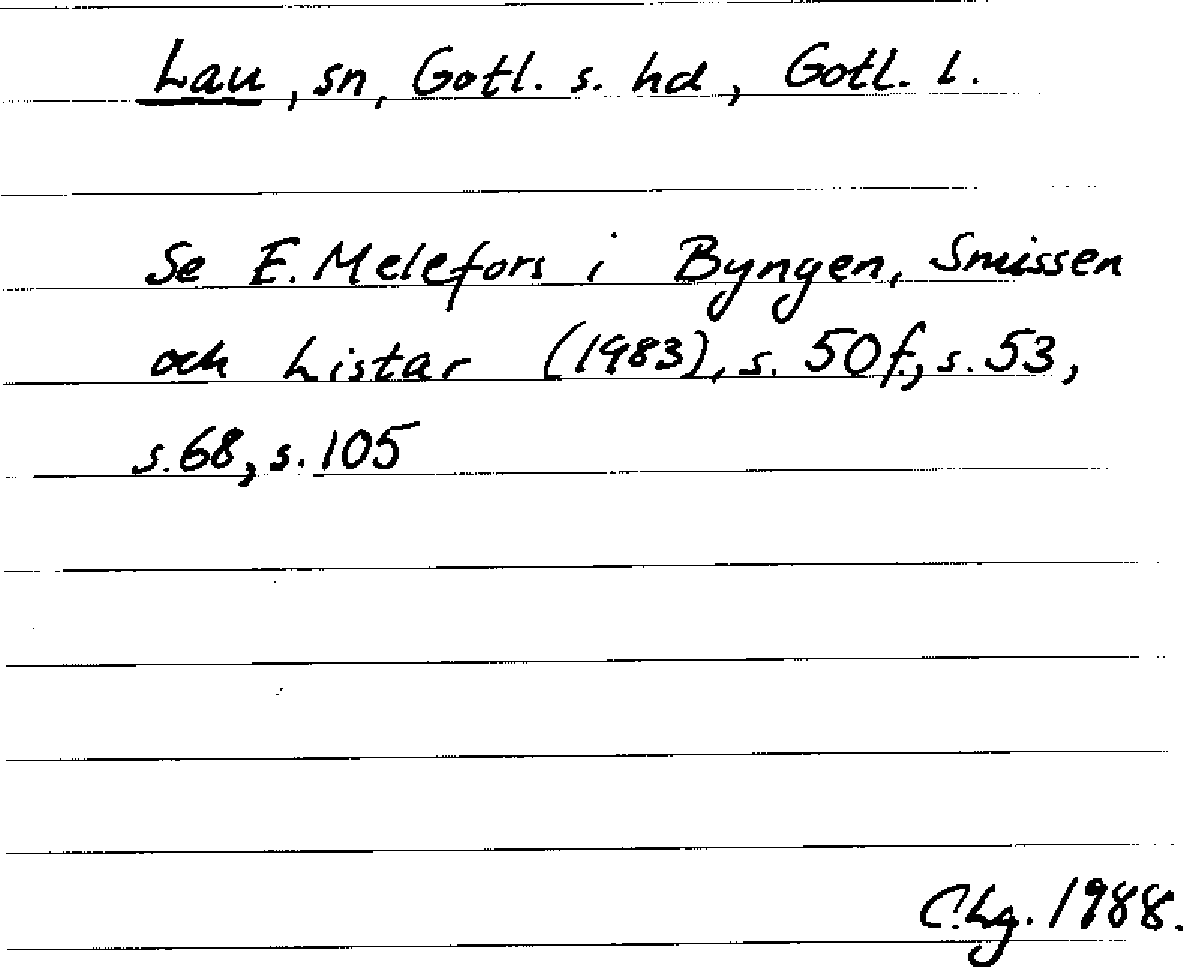 Lau, sn, Gotl. s. hd, Gotl. l.
Se E. Melefors i Byngen, Smissen
och Listar (1983), s. 50 f., s. 53,
s. 68, s. 105
C.Lg. 1988.